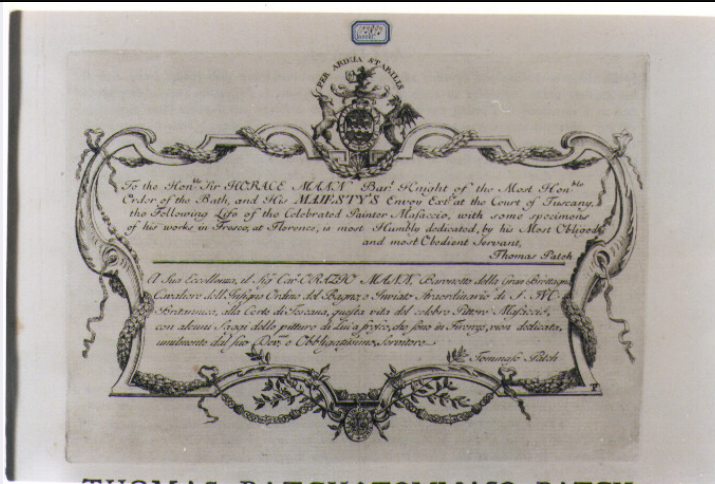 PER ARDUA STABILIS
To the Hon.ble Sir HORACE MANN Bar.t Knight of the Most Hon.ble
Order of the Bath, and His MAJESTY'S Envoy Ext.y at the Court of Tuscany,
the Following Life of the Celebrated Painter Masaccio, with some specimens
of his works in Fresco, at Florence, is most Humbly dedicated, by his Most Obliged,
and most Obedient Servant,
Thomas Patch
A Sua Eccellenza, il Sig. Cav. ORAZIO MANN, Baronetto della Gran Brettagna
Cavaliere dell'Insigne Ordine del Bagno, e Inviato Straordinario di S. M.
Britannica, alla Corte di Toscana, questa vita del celebre Pittore Masaccio,
con alcuni Saggi delle pitture di lui a fresco, che sono in Firenze, vien dedicata,
umilmente dal suo Dev. e Obbligatissimo Servitore
Tommaso Patch
THOMAS PATCH TOMMASO PATCH